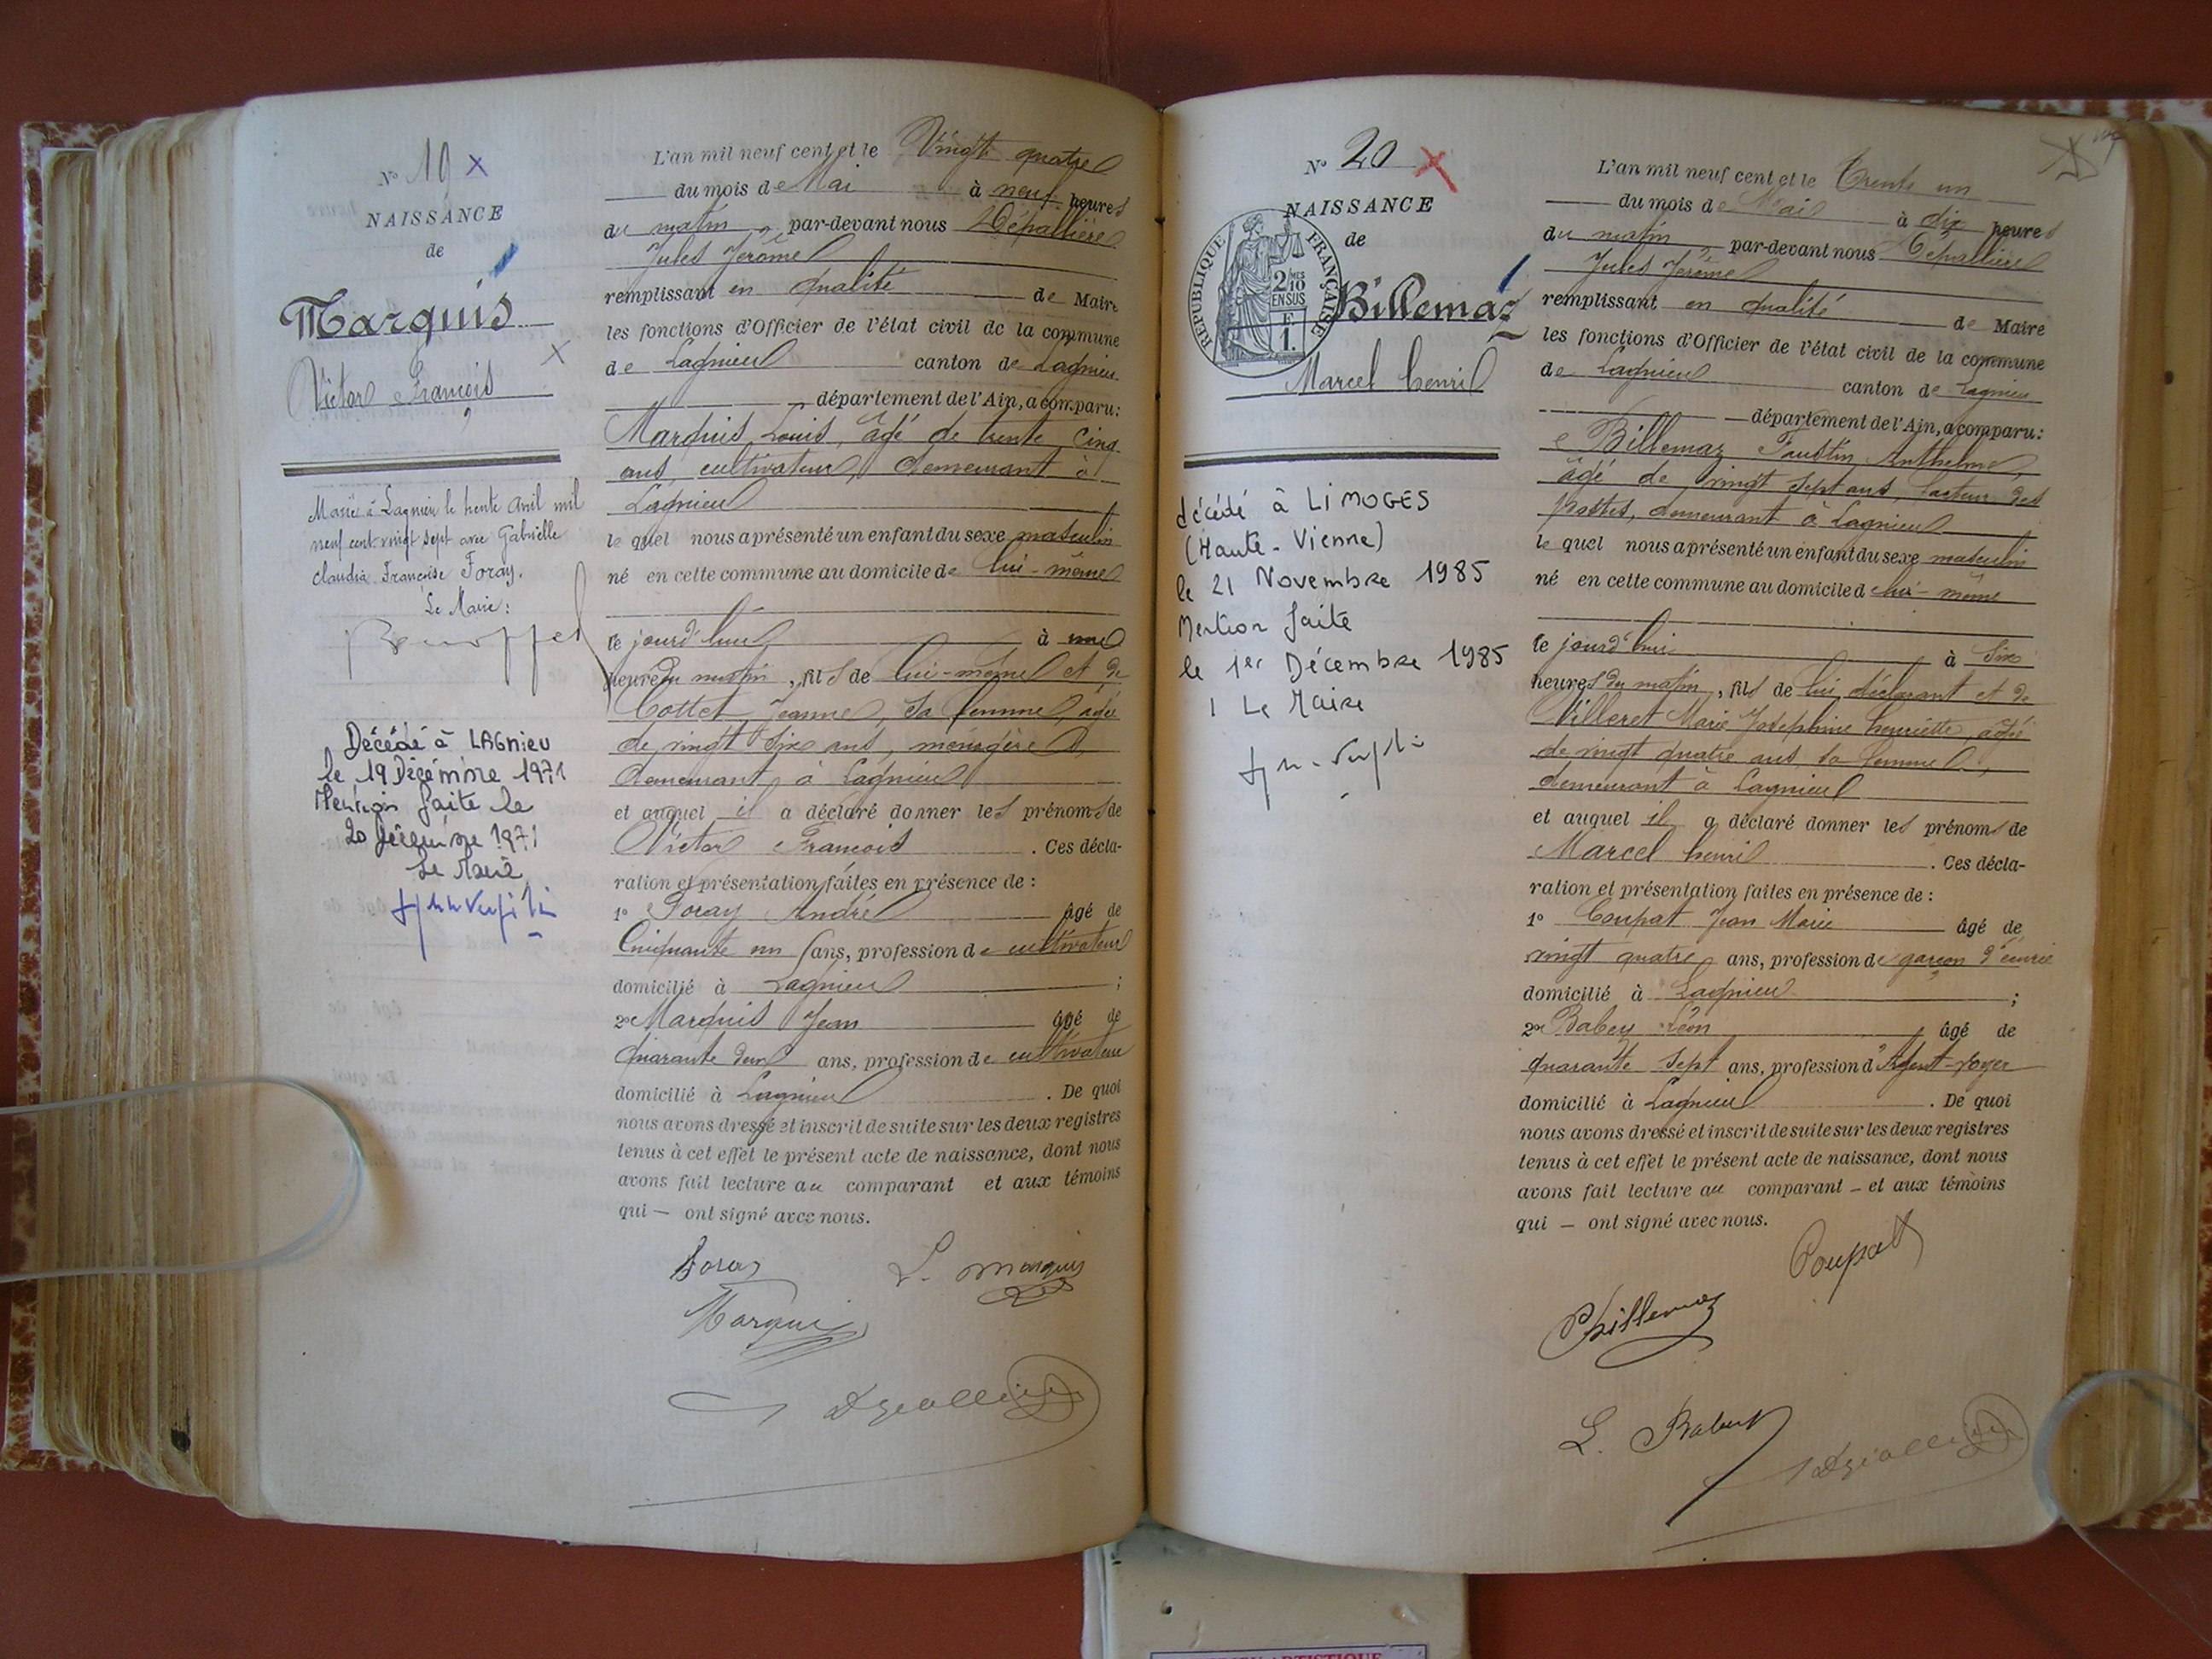 N° 19 x
NAISSANCE
de
Marquis
Victor François
Marié à Lagnieu le trente Avril mil
neuf cent vingt sept avec Gabrielle
Claudia Françoise Foray.
Le Maire:
Décédé à LAGNieu
le 19 Décembre 1971
Mention faite le
20 Décembre 1971
Le Maire
L'an mil neuf cent et le Vingt quatre
du mois de Mai à neuf heures
du matin, par-devant nous Dépallière
Jules Jérôme
remplissant en qualité de Maire
les fonctions d'Officier de l'état civil de la commune
de Lagnieu canton de Lagnieu
département de l'Ain, a comparu:
Marquis Louis, âgé de trente cinq
ans, cultivateur, demeurant à
Lagnieu
lequel nous a présenté un enfant du sexe masculin
né en cette commune au domicile de lui-même
ce jourd'hui à une
heure du matin, fils de lui-même et de
Cottet Jeanne, sa femme, âgée
de vingt six ans, ménagère,
demeurant à Lagnieu
et auquel il a déclaré donner les prénoms de
Victor François. Ces décla-
ration et présentation faites en présence de:
1° Foray André âgé de
Cinquante un ans, profession de cultivateur
domicilié à Lagnieu;
2° Marquis Jean âgé de
quarante deux ans, profession de cultivateur
domicilié à Lagnieu. De quoi
nous avons dressé et inscrit de suite sur les deux registres
tenus à cet effet le présent acte de naissance, dont nous
avons fait lecture au comparant et aux témoins
qui — ont signé avec nous.
Foray L. Marquis
Marquis
N° 20 x
NAISSANCE
de
RÉPUBLIQUE FRANÇAISE
2/10 MES
EN SUS
F.
1.
Billemaz
Marcel henri
décédé à LIMOGES
(Haute-Vienne)
le 21 Novembre 1985
Mention faite
le 1er Décembre 1985
Le Maire
L'an mil neuf cent et le Trente un
du mois de Mai à dix heures
du matin par-devant nous Dépallière
Jules Jérôme
remplissant en qualité de Maire
les fonctions d'Officier de l'état civil de la commune
de Lagnieu canton de Lagnieu
département de l'Ain, a comparu:
Billemaz Faustin Anthelme,
âgé de vingt sept ans, facteur des
Postes, demeurant à Lagnieu
lequel nous a présenté un enfant du sexe masculin
né en cette commune au domicile de lui-même
ce jourd'hui à six
heures du matin, fils de lui déclarant et de
Villeret Marie Joséphine henriette, âgée
de vingt quatre ans, sa femme,
demeurant à Lagnieu
et auquel il a déclaré donner les prénoms de
Marcel henri. Ces décla-
ration et présentation faites en présence de:
1° Coupat Jean Marie âgé de
vingt quatre ans, profession de garçon d'écurie
domicilié à Lagnieu;
2° Babey Léon âgé de
quarante sept ans, profession d'Agent-voyer
domicilié à Lagnieu. De quoi
nous avons dressé et inscrit de suite sur les deux registres
tenus à cet effet le présent acte de naissance, dont nous
avons fait lecture au comparant — et aux témoins
qui — ont signé avec nous.
Coupat
Billemaz
L. Babey